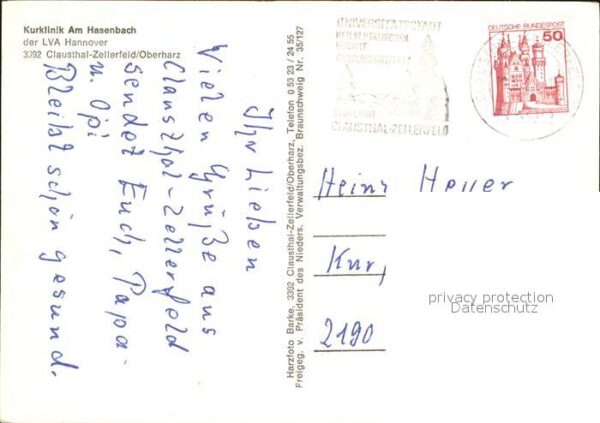 Kurklinik Am Hasenbach
der LVA Hannover
3392 Clausthal-Zellerfeld/Oberharz
Ihr Lieben
Vielen Grüße aus
Clausthal-Zellerfeld
sendet Euch, Papa-
u. Opi
Bleibt schön gesund.
Harzfoto Barke, 3392 Clausthal-Zellerfeld/Oberharz, Telefon 0 53 23 / 24 55
Freigeg. v. Präsident des Nieders. Verwaltungsbez. Braunschweig Nr. 35/127
UNIVERSITÄTSSTADT
HEILKLIMATISCHER
KURORT
CLAUSTHAL-ZELLERFELD
DEUTSCHE BUNDESPOST
50
Heinz
Kur,
2190
privacy protection
Datenschutz